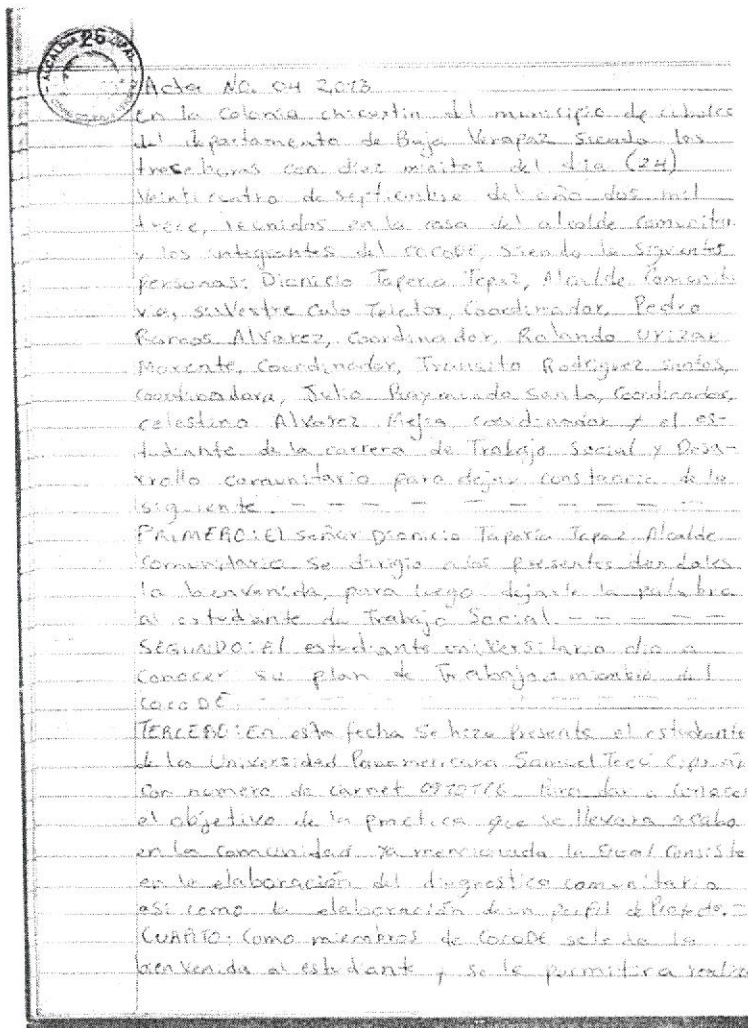 26
Acta No. 04 2,013
En la Colonia chicustin del municipio de cubulco
del departamento de Baja Verapaz siendo las
trece horas con diez minitos del dia (24)
Veinticuatro de septiembre del año dos mil
trece, reunidos en la casa del alcalde comunitar
y los integrantes del COCODE, siendo la siguientes
personas: Dionicio Taperia Tepaz, Alcalde Comunita
Silvestre Calo Coordinador, Pedro
Alvarez, Coordinador, Rolando Urizar
Morente, Coordinador, Transito Rodriguez Santos,
Coordinadora, Julio Raymundo Santa, Coordinador,
celestino Alvarez Mejia coordinador y el es-
tudiante de la carrera de Trabajo Social y Desa-
rrollo comunitario para dejar constancia de lo
siguiente. - - - - - - - - -
PRIMERO: El señor Dionicio Taperia Tepaz Alcalde
Comunitario se dirigio a los presentes dandoles
la bienvenida, para luego dejarle la palabra
al estudiante de Trabajo Social - - - - -
SEGUNDO: El estudiante universitario dio a
conocer su plan de Trabajo a miembro del
COCODE. - - - - - - - - -
TERCERO: En esta fecha se hizo Presente el estudiante
de la Universidad Panamericana Samuel Tecú
Con numero de carnet Para dar a conocer
el objetivo de la practica que se llevara acabo
en la comunidad ya mencionada la cual consiste
en la elaboración del diagnostico comunitario
así como la elaboración de un perfil de Proyecto. =
CUARTO: Como miembros de COCODE se le da la
bienvenida al estudiante y se le permitira realiza